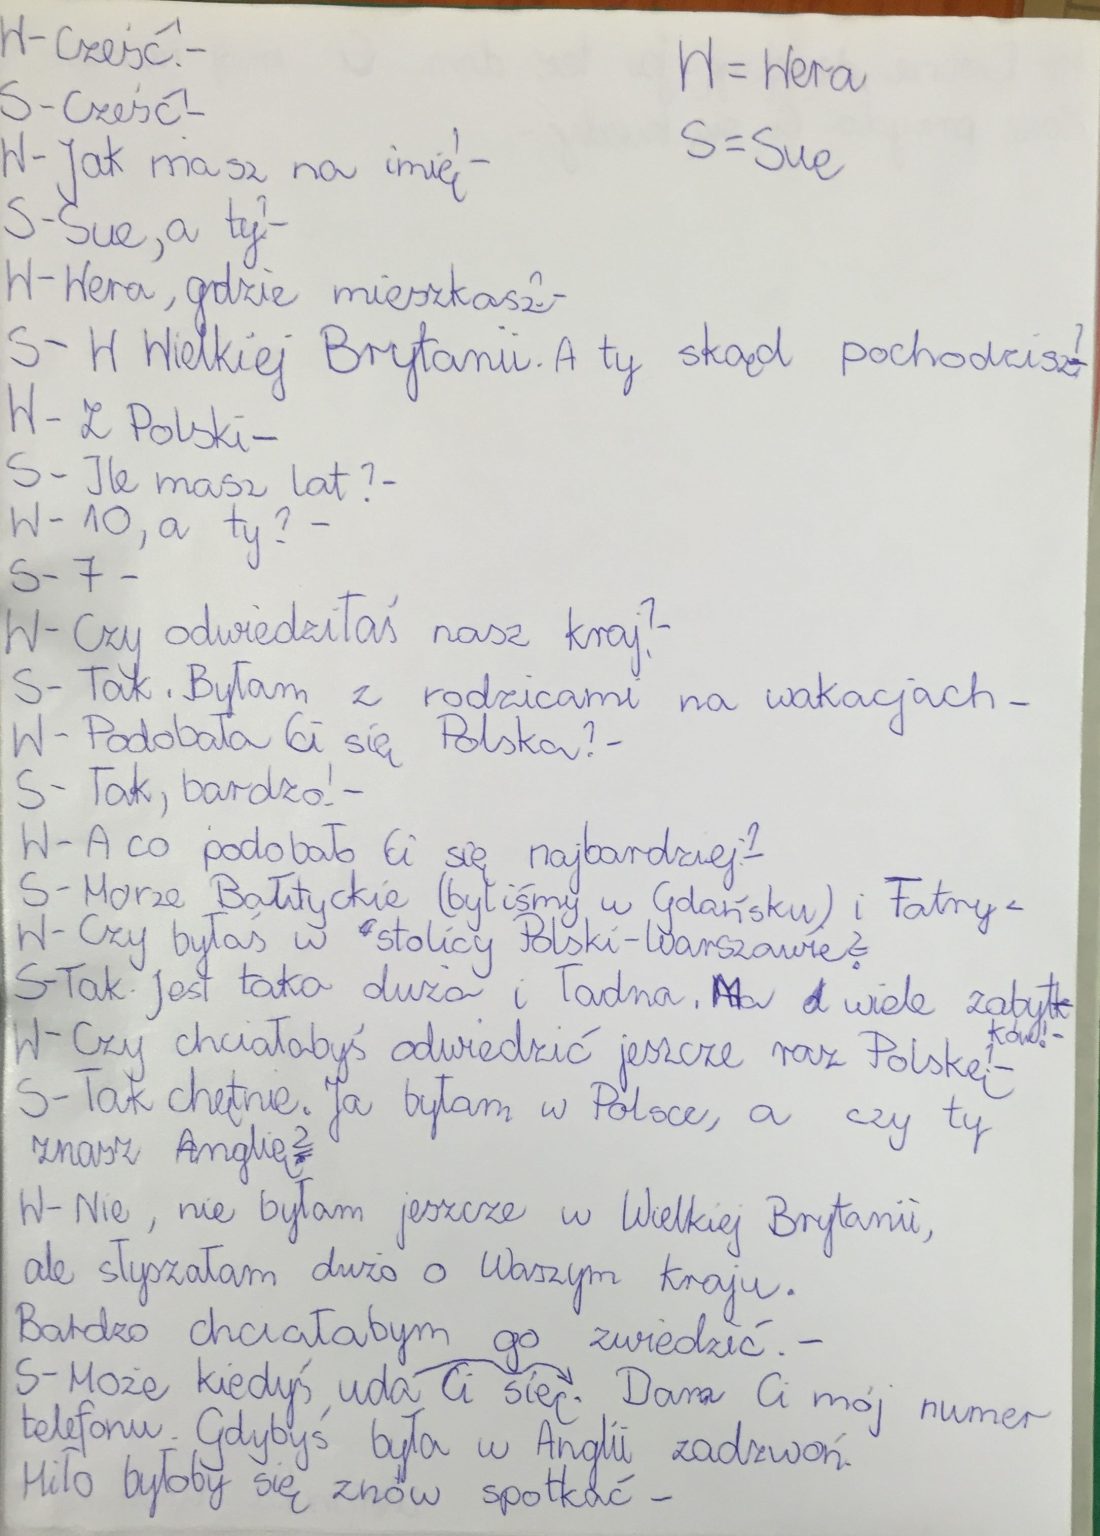 W- Cześć!-
W = Wera
S- Cześć!-
S = Sue
W- Jak masz na imię!-
S- Sue, a ty?-
W- Wera, gdzie mieszkasz?-
S- W Wielkiej Brytanii. A ty skąd pochodzisz?-
W- Z Polski-
S- Ile masz lat?-
W- 10, a ty? -
S- 7 -
W- Czy odwiedziłaś nasz kraj?-
S- Tak. Byłam z rodzicami na wakacjach-
W- Podobała Ci się Polska?-
S- Tak, bardzo!-
W- A co podobało Ci się najbardziej?-
S- Morze Bałtyckie (byliśmy w Gdańsku) i Tatry-
W- Czy byłaś w stolicy Polski-Warszawie?
S-Tak. Jest taka duża i ładna. Ma wiele zabyt
ków!-
W- Czy chciałabyś odwiedzić jeszcze raz Polskę!-
S- Tak chętnie. Ja byłam w Polsce, a czy ty
znasz Anglię?
W- Nie, nie byłam jeszcze w Wielkiej Brytanii,
ale słyszałam dużo o Waszym kraju.
Bardzo chciałabym go zwiedzić.-
S- Może kiedyś uda Ci się. Dam Ci mój numer
telefonu. Gdybyś była w Anglii zadzwoń.
Miło byłoby się znów spotkać -